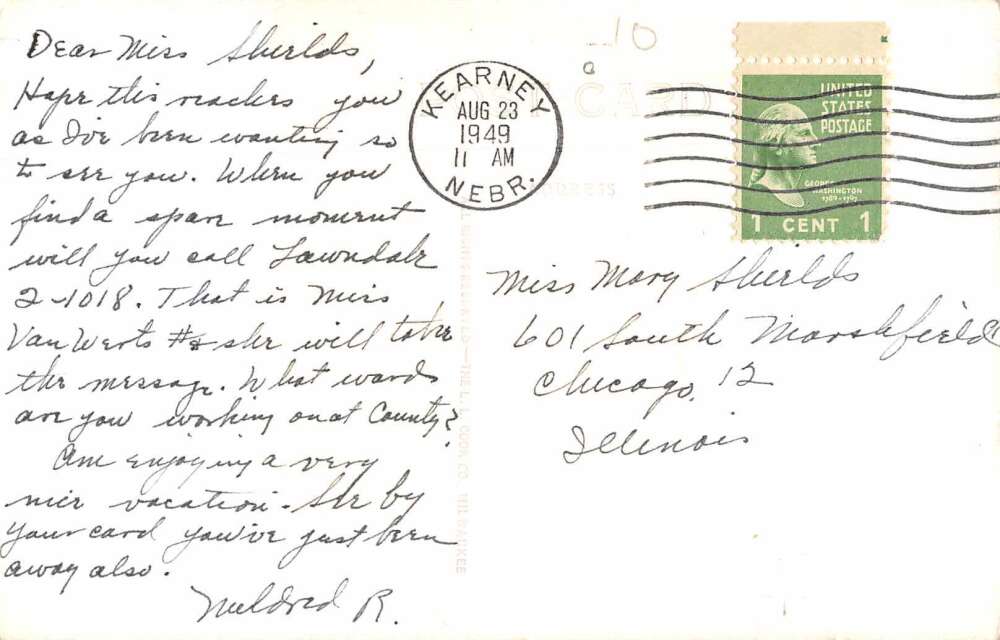 Dear Miss Shields,
Hope this reaches you
as I've been wanting so
to see you. When you
find a spare moment
will you call Lawndale
2-1018. That is Miss
Van Werts # & she will take
the message. What wards
are you working on at County?
Am enjoying a very
nice vacation. See by
your card you've just been
away also.
Mildred R.
-10
KEARNEY
AUG 23
1949
11 AM
NEBR.
CARD
ADDRESS
UNITED
STATES
POSTAGE
GEORGE
WASHINGTON
1789-1797
1 CENT 1
Miss Mary Shields
601 South Marshfield
Chicago 12
Illinois